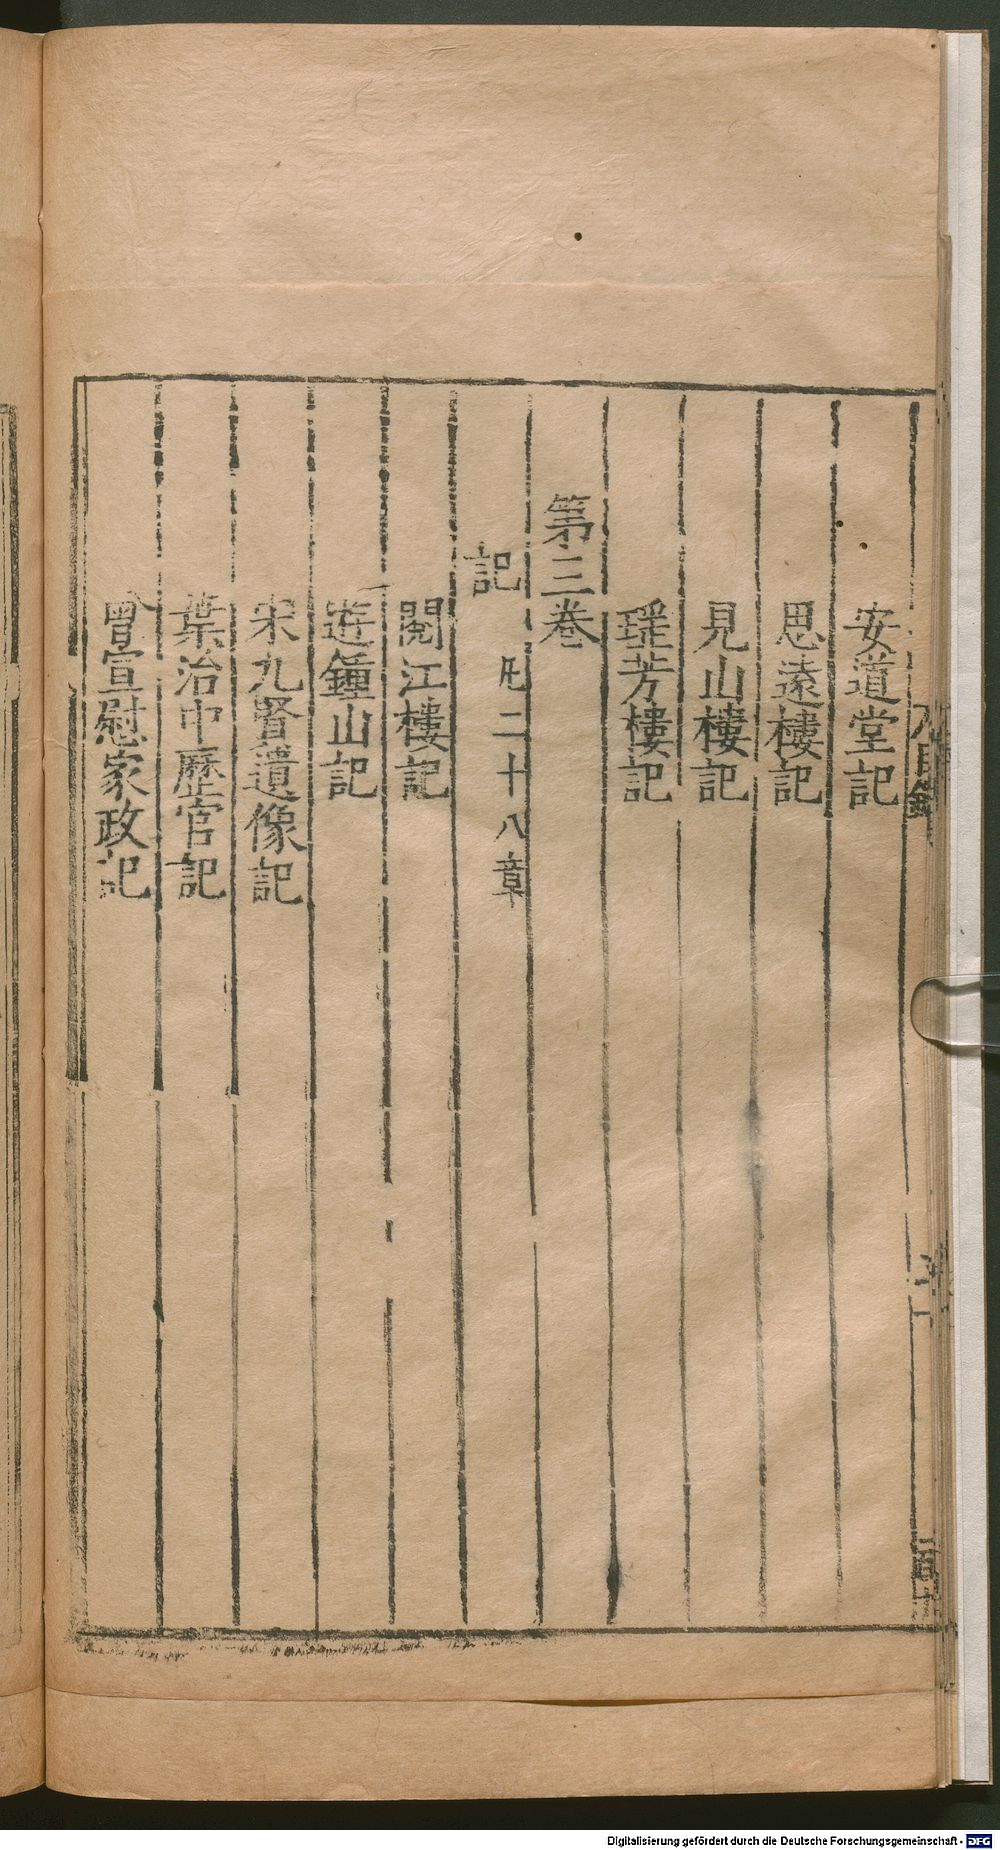 安道堂記
思遠樓記
見山樓記
瑶芳樓記
第三卷
記 凡二十八章
閱江樓記
遊鍾山記
宋九賢遺像記
葉治中歷官記
曾宣慰家政記
目錄
Digitalisierung gefördert durch die Deutsche Forschungsgemeinschaft - DFG